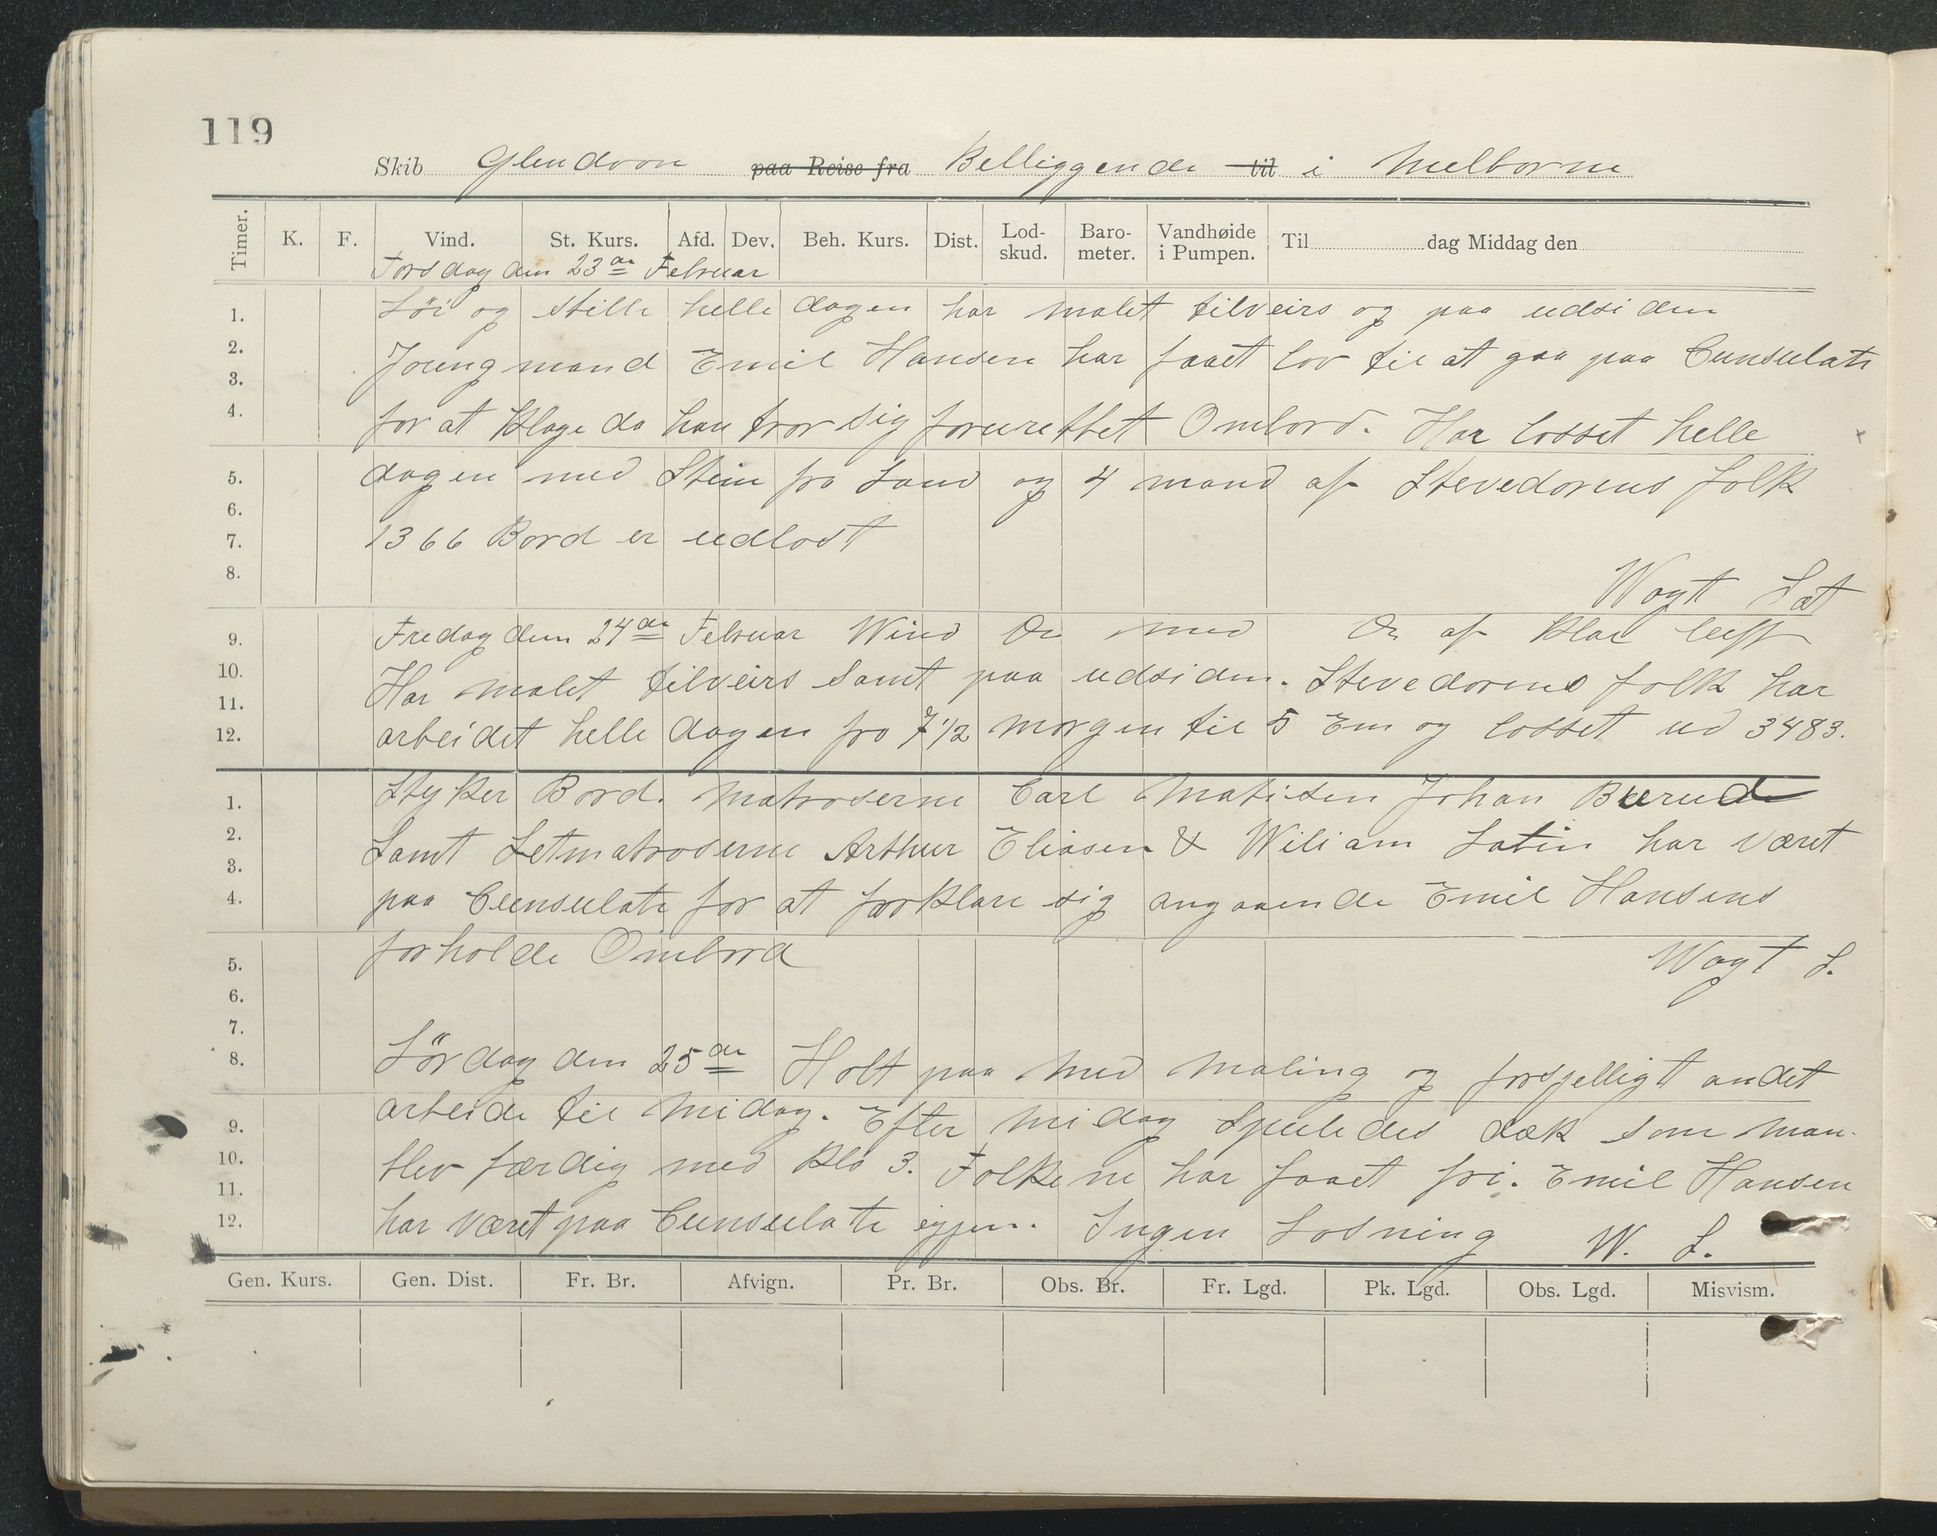 119
Skib Glendoon paa Reise fra Belliggende til i Melborne
Timer. K. F. Vind. St. Kurs. Afd. Dev. Beh. Kurs. Dist. Lod-skud. Baro-meter. Vandhøide i Pumpen. Til dag Middag den
Torsdag den 23de Februar
1. Löi og stille helle dagen har malet tilveirs og paa udsiden
2. Joungmand Emil Hansen har faaet lov til at gaa paa Cunsulate
3.
4. for at klage da han tror sig forurettet Ombord. Har losset helle
5. dagen med Stein fra Land og 4 mand af Stevedorens folk
6.
7. 1366 Bord er udlost
8. Wagt Læt
9. Fredag den 24de Februar Wind Do med Do af klar luft
10. Har malet tilveirs samt paa udsiden. Stevedorens folk har
11.
12. arbeidet helle dagen fra 7 1/2 morgen til 5 Em og losset ud 3483.
1. Styker Bord. Matroserne Carl Matisen Johan Burud
2. Samt Letmatroserne Arthur Eliasen & Wiliam Latin har været
3.
4. paa Cunsulate for at forklare sig angaaende Emil Hansens
5. forholde Ombord Wagt L.
6.
7.
8. Lördag den 25de Holt paa med maling og forsjelligt andet
9. arbeide til midag. Efter midag Spuledes dæk som man
10. blev færdig med Klo 3. Folkene har faaet fri. Emil Hansen
11.
12. har været paa Cunsulate igjen. Ingen Losning W. L.
Gen. Kurs. Gen. Dist. Fr. Br. Afvign. Pr. Br. Obs. Br. Fr. Lgd. Pk. Lgd. Obs. Lgd. Misvism.